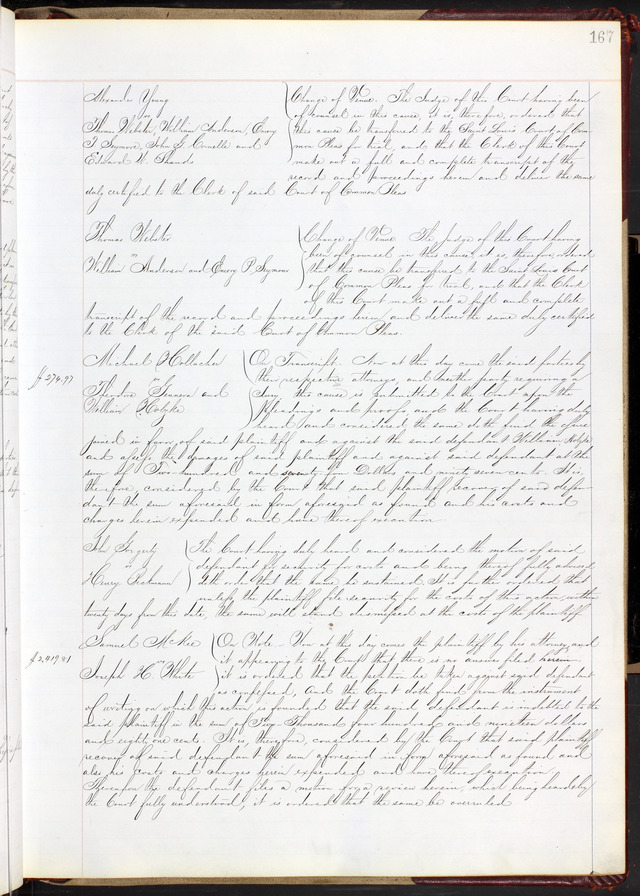 167
Alexander Young
vs
Thomas Webster, William Anderson, Emery
P. Seymour, John S. and
Edward H. Shands
Change of Venue. The Judge of this Court having been
of counsel in this cause, it is, therefore, ordered that
this cause be transferred to the Saint Louis Court of Com-
mon Pleas for trial, and that the Clerk of this Court
make out a full and complete transcript of the
record and proceedings herein and deliver the same
duly certified to the Clerk of said Court of Common Pleas
Thomas Webster
vs
William Anderson and Emery P. Seymour
Change of Venue. The Judge of this Court having
been of counsel in this cause, it is, therefore, ordered
that this cause be transferred to the Saint Louis Court
of Common Pleas for trial, and that the Clerk
of this Court make out a full and complete
transcript of the record and proceedings herein and deliver the same duly certified
to the Clerk of the said Court of Common Pleas.
$274.97
Michael
vs
Theodore and
William
On Transcript. Now at this day come the said parties by
their respective attorneys, and neither party requiring a
Jury this cause is submitted to the Court upon the
pleadings and proof, and the Court having duly
heard and considered the same doth find the issue
joined in favor of said plaintiff and against the said defendant William
and assess the damages of said plaintiff and against said defendant at the
sum of Two hundred and seventy Dollars and ninety seven cents. It is,
therefore, considered by the Court that said plaintiff recover of said defen-
dant the sum aforesaid in form aforesaid as found and his costs and
charges herein expended and have thereof execution
John Fogerty
vs
Henry
The Court having duly heard and considered the motion of said
defendant for security for costs and being thereof fully advised
doth order that the same be sustained. It is further ordered that
unless the plaintiff file security for the costs of this action within
twenty days from this date, the same will stand dismissed at the cost of the plaintiff
$2,419.81
Samuel McKee
vs
Joseph H. White
On Note. Now at this day comes the plaintiff by his attorney, and
it appearing to the Court that there is no answer filed herein
it is ordered that the petition be taken against said defendant
as confessed, and the Court doth find from the instrument
of writing on which this action is founded that the said defendant is indebted to the
said plaintiff in the sum of Two Thousand four hundred and nineteen dollars
and eighty one cents. It is, therefore, considered by the Court that said plaintiff
recover of said defendant the sum aforesaid in form aforesaid as found and
also his costs and charges herein expended and have thereof execution
Thereupon the defendant files a motion for a review herein, which being heard by
the Court fully understood, it is ordered that the same be overruled